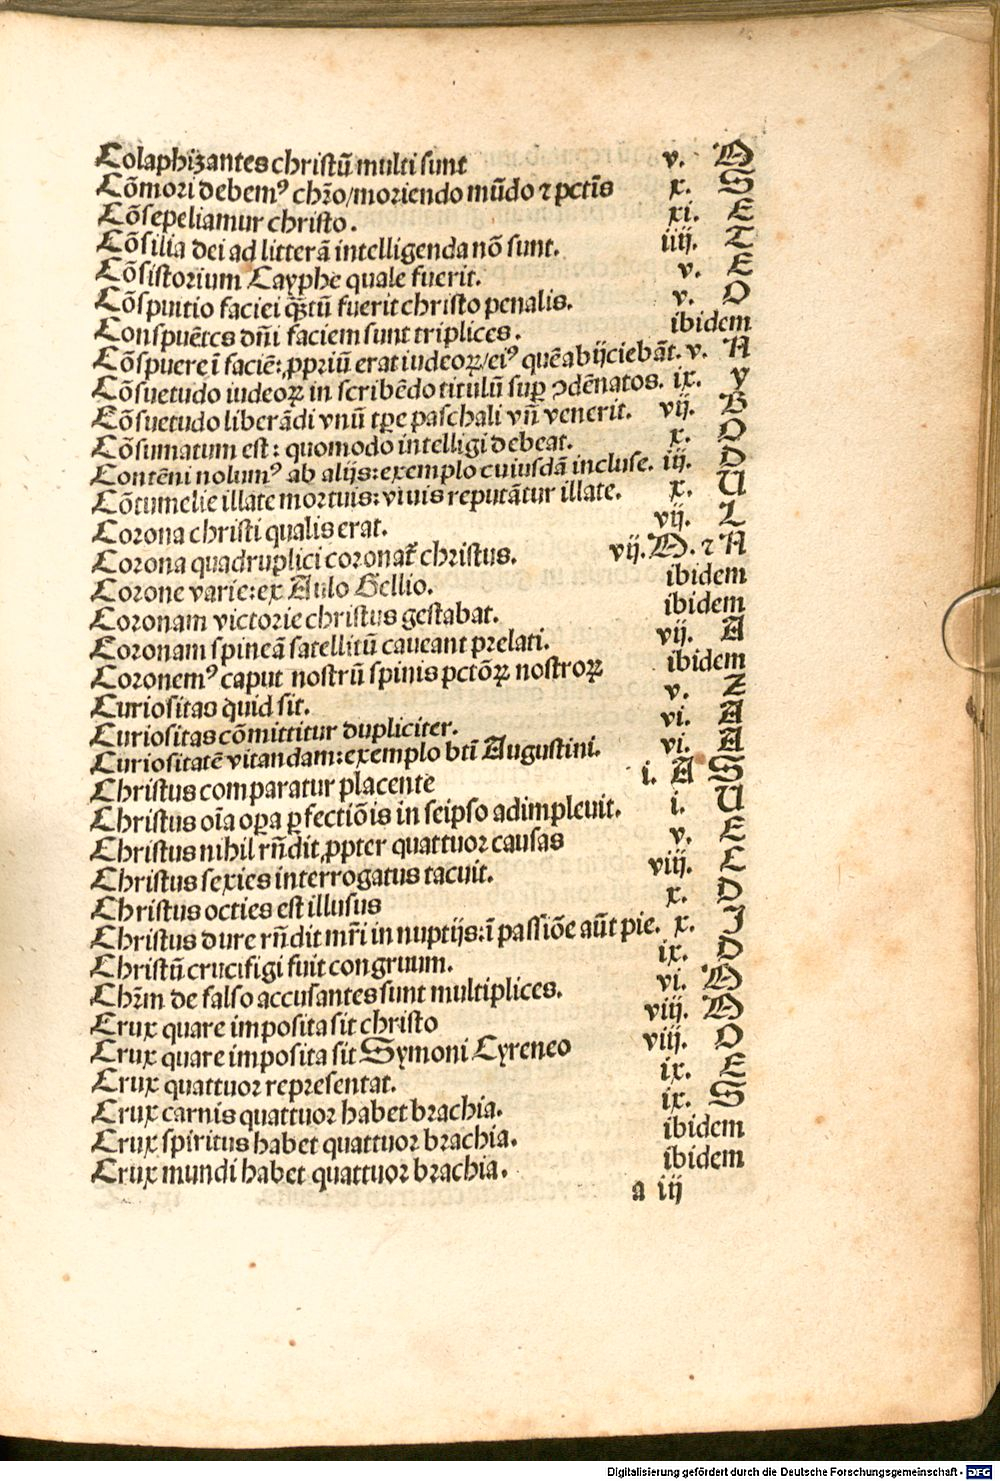 Colaphizantes christū multi sunt v. Q
Cōmori debemꝰ chr̄o/moriendo mūdo ⁊ pctīs x. S
Cōsepeliamur christo. xi. E
Cōsilia dei ad litterā intelligenda nō sunt. iiij. C
Cōsistorium Cayphe quale fuerit. v. E
Cōspuitio faciei quātū fuerit christo penalis. v. O
Conspuētes dn̄i faciem sunt triplices. ibidem
Cōspuere ī faciē: ꝓpriū erat iudeoꝝ/eiꝰ quē abijciebāt. v. N
Cōsuetudo iudeoꝝ in scribēdo titulū suꝑ ↄdēnatos. ix. y
Cōsuetudo liberādi vnū tꝑe paschali vn̄ venerit. vij. B
Cōsumatum est: quomodo intelligi debeat. x. O
Contēni nolumꝰ ab alijs: exemplo cuiusdā incluse. iij. D
Cōtumelie illate mortuis: viuis reputātur illate. x. U
Corona christi qualis erat. vij. L
Corona quadruplici coronat̄ christus. vij. Q. ⁊ N
Corone varie: ex Aulo Gellio. ibidem
Coronam victorie christus gestabat. ibidem
Coronam spineā satellitū caueant prelati. vij. A
Coronemꝰ caput nostrū spinis pctōꝝ nostroꝝ ibidem
Curiositas quid sit. v. Z
Curiositas cōmittitur dupliciter. vi. A
Curiositatē vitandam: exemplo btī Augustini. vi. A
Christus comparatur placente i. A S
Christus oīa oꝑa ꝑfectiōis in seipso adimpleuit. i. U
Christus nihil rn̄dit ꝓpter quattuor causas v. E
Christus sexies interrogatus tacuit. viij. C
Christus octies est illusus x. D
Christus dure rn̄dit mr̄i in nuptijs: ī passiōe aūt pie. x. J
Christū crucifigi fuit congruum. ix. D
Chr̄m de falso accusantes sunt multiplices. vi. Q
Crux quare imposita sit christo viij. Q
Crux quare imposita sit Symoni Cyreneo viij. O
Crux quattuor representat. ix. E
Crux carnis quattuor habet brachia. ix. S
Crux spiritus habet quattuor brachia. ibidem
Crux mundi habet quattuor brachia. ibidem
a iij
Digitalisierung gefördert durch die Deutsche Forschungsgemeinschaft - DFG